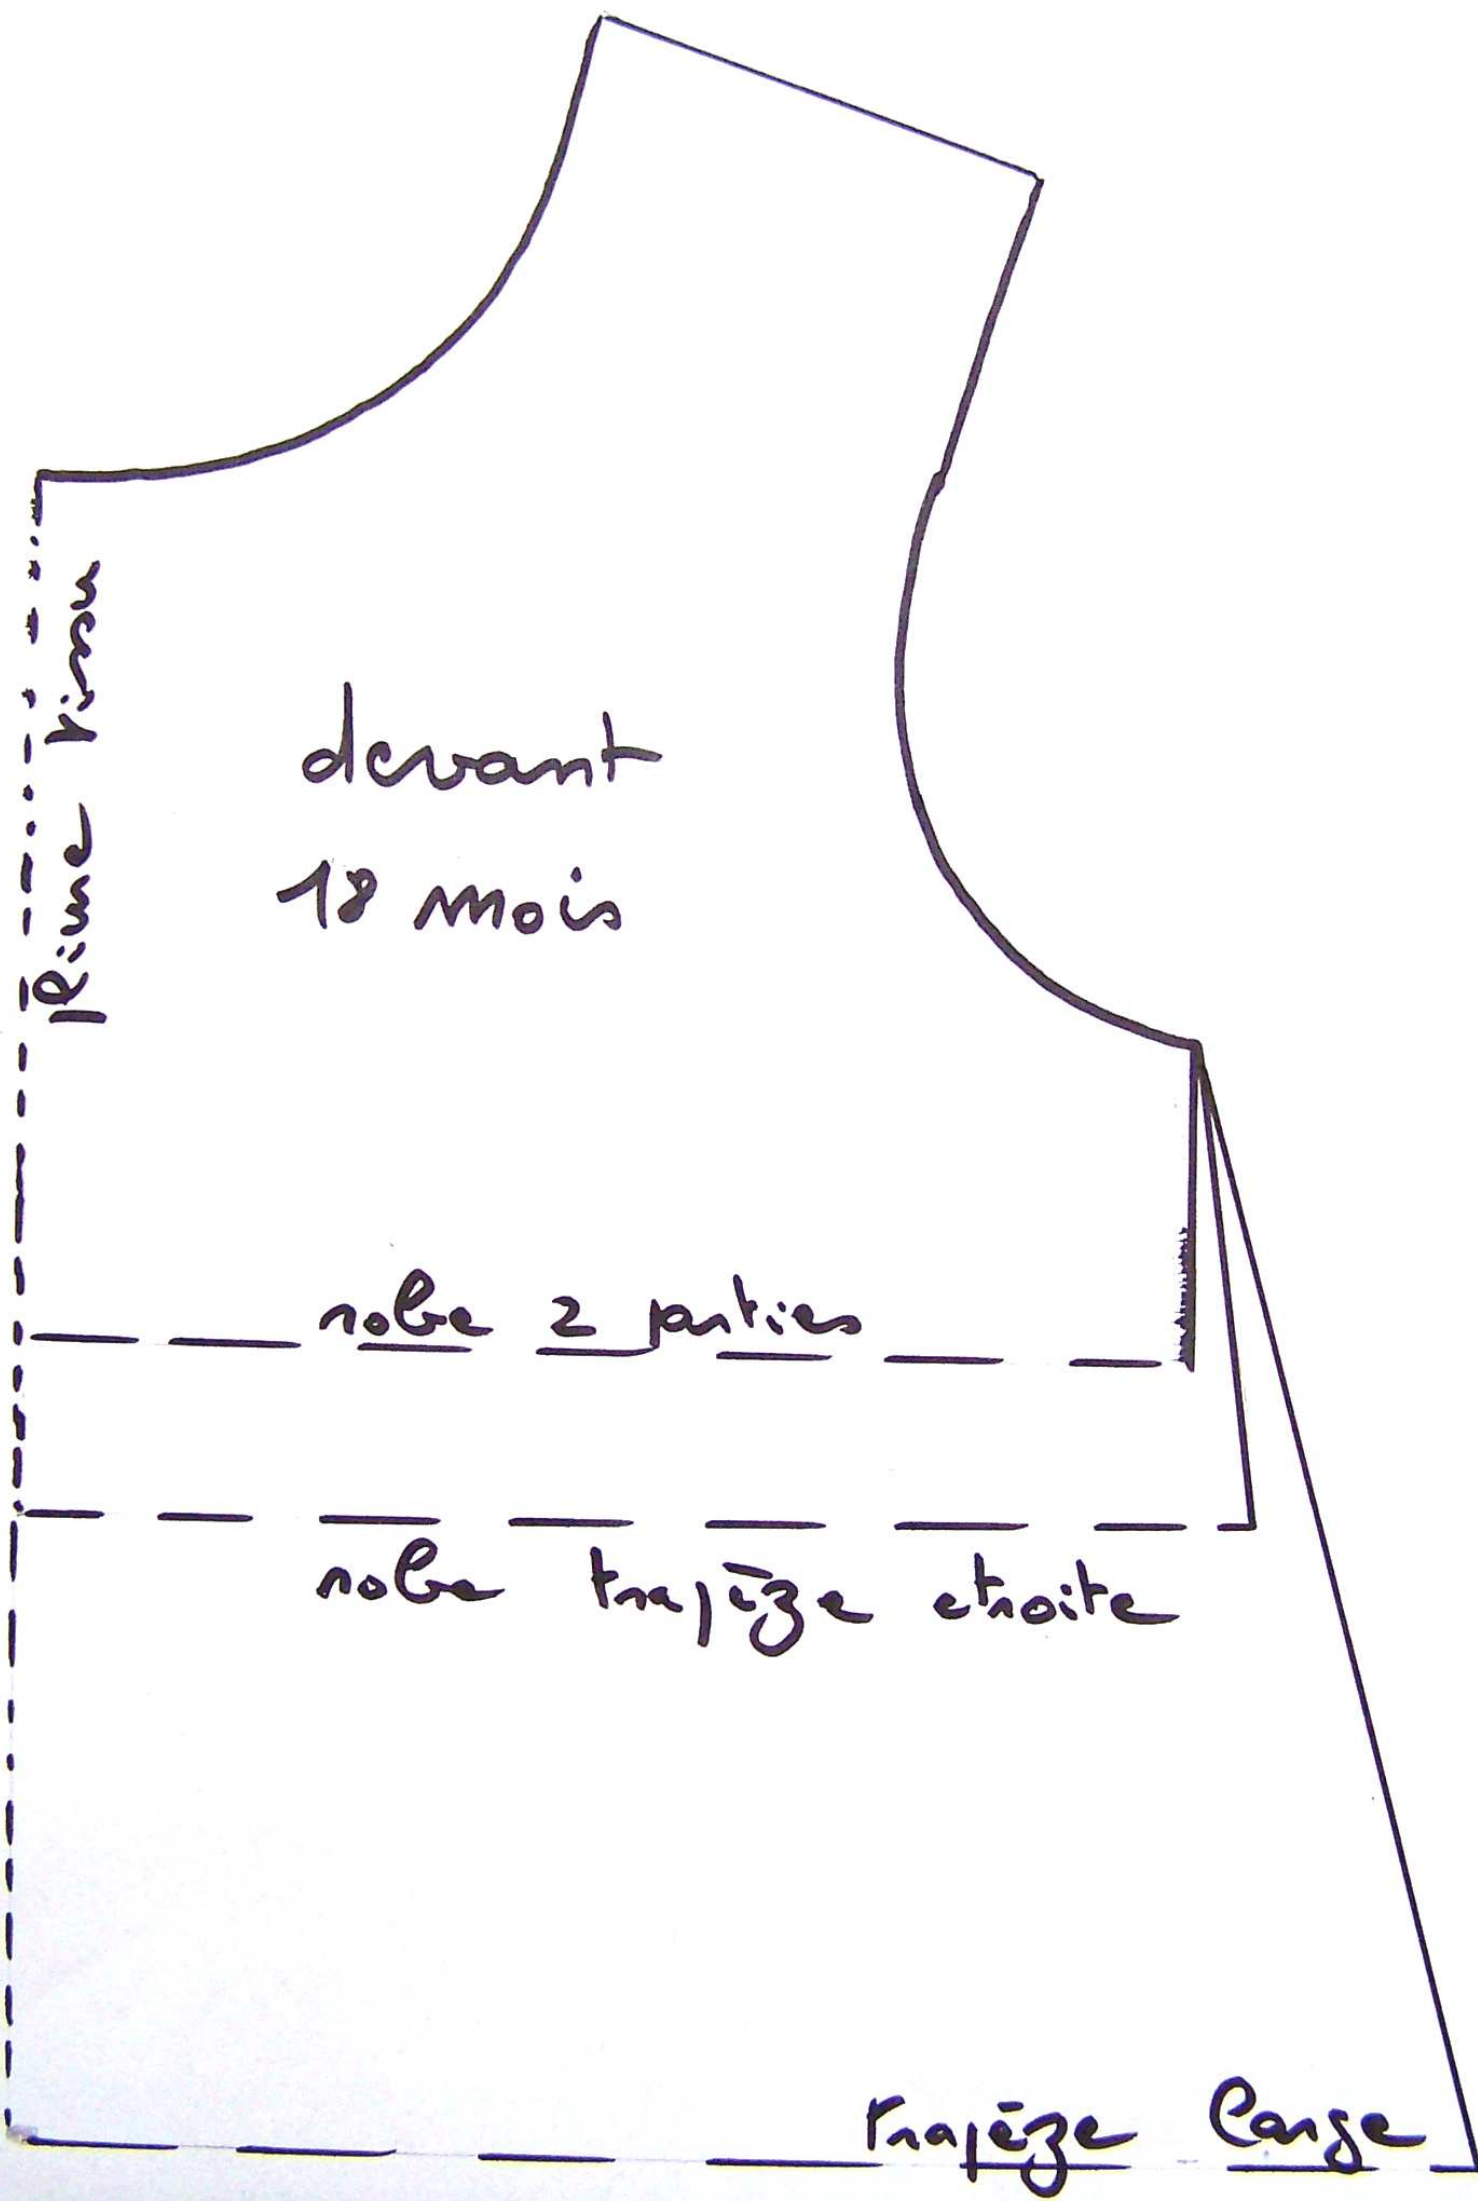 Pliure tissu
devant
18 mois
robe 2 parties
robe trapèze etroite
trapèze large